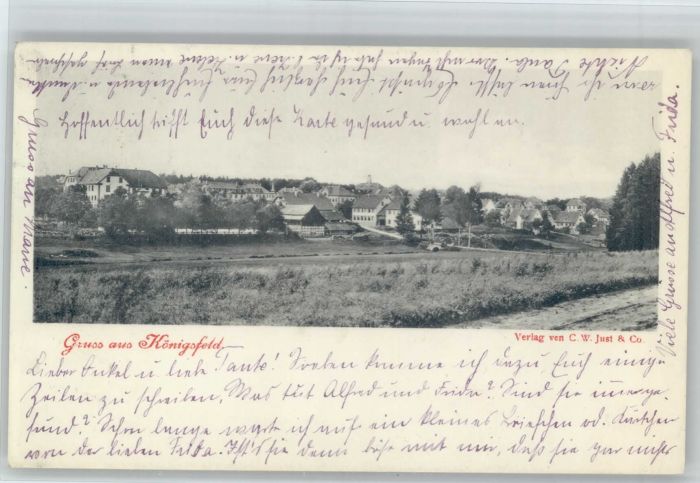 Gruss aus Königsfeld.
Verlag von C. W. Just & Co.
Lieber Onkel u. liebe Tante! Soeben komme ich dazu Euch einige
Zeilen zu schreiben. Was tut Alfred und Frida? Sind sie immer ge-
sund? Schon lange warte ich auf ein kleines Briefchen od. Kärtchen
von der lieben Frida. Ist's sie denn böse mit mir, daß sie gar nichts
Hoffentlich trifft Euch diese Karte gesund u. wohl an.
Nichte Paula.
Gruss an Marie.
Viele Grüsse an Alfred u. Frida.